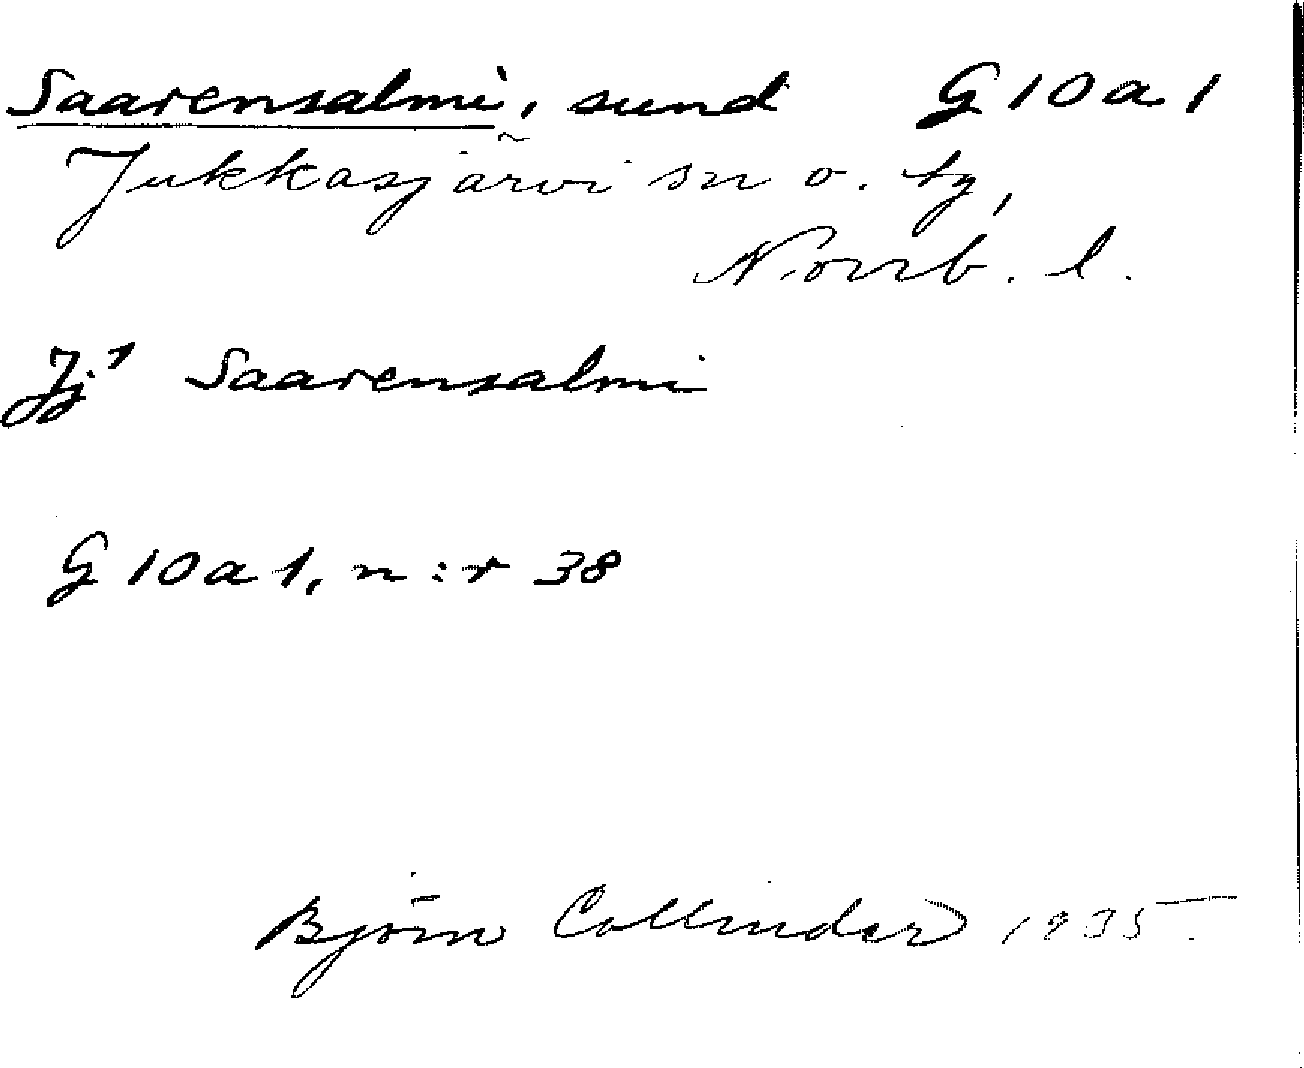 Saarensalmi, sund G 10 a 1
Jukkasjärvi sn o. tg,
Norrb. l.
Jj¹ Saarensalmi
G 10 a 1, n:r 38
Björn Collinder 1935.